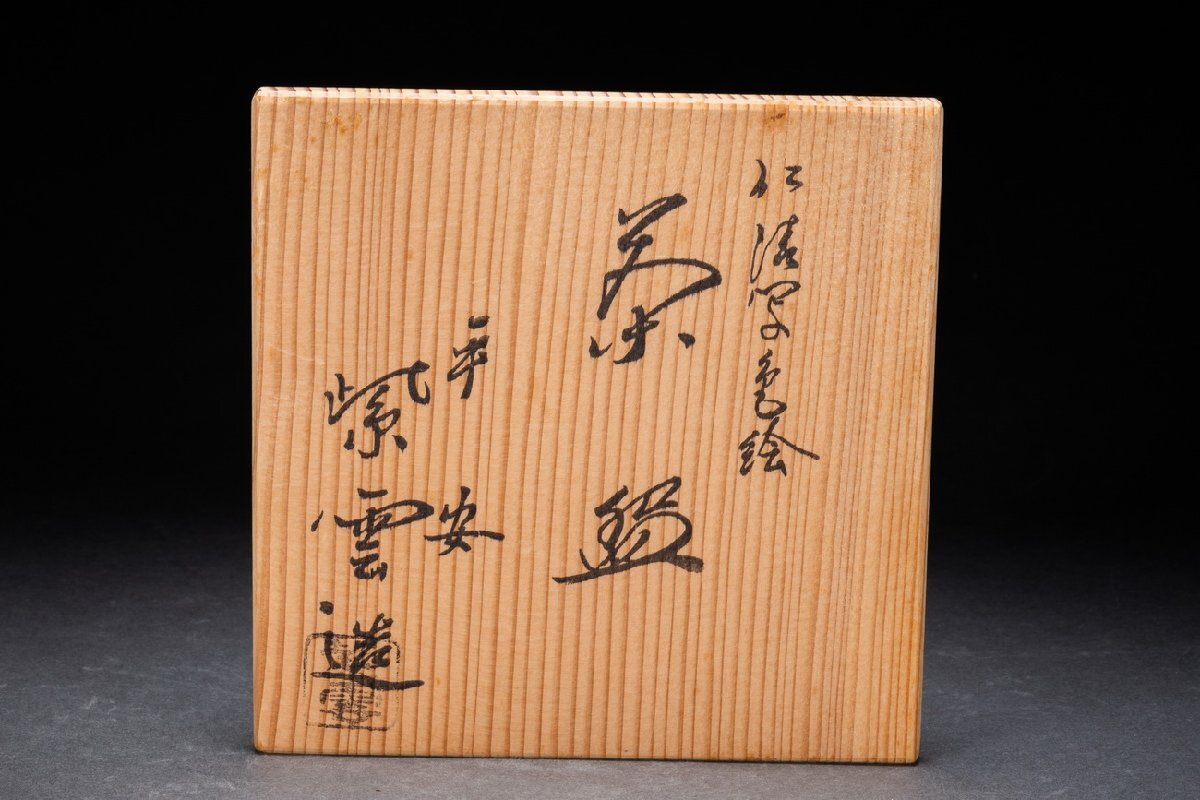 仁清写色絵
茶盌
平安
紫雲造